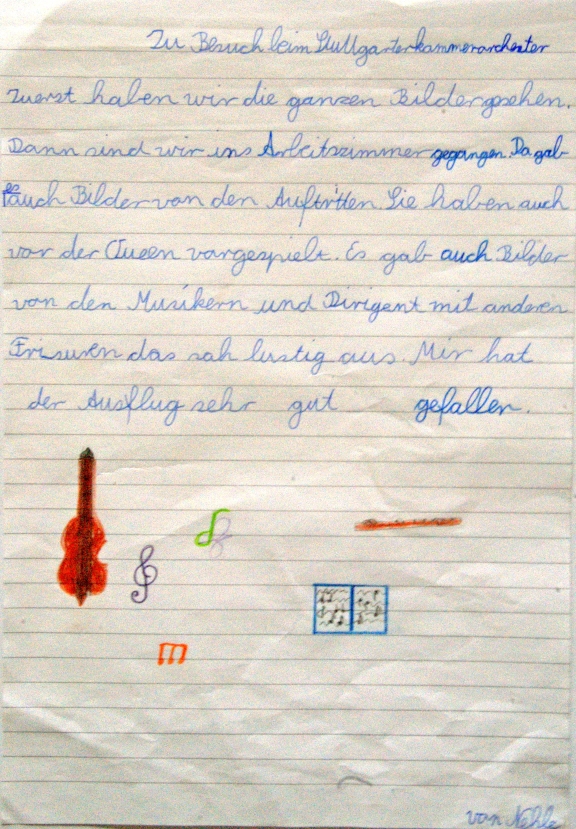 Zu Besuch beim Stuttgarterkammerorchester
Zuerst haben wir die ganzen Bilder gesehen.
Dann sind wir ins Arbeitszimmer gegangen. Da gab
es auch Bilder von den Auftritten. Sie haben auch
vor der Queen vorgespielt. Es gab auch Bilder
von den Musikern und Dirigent mit anderen
Frisuren das sah lustig aus. Mir hat
der Ausflug sehr gut gefallen.
von Nehle